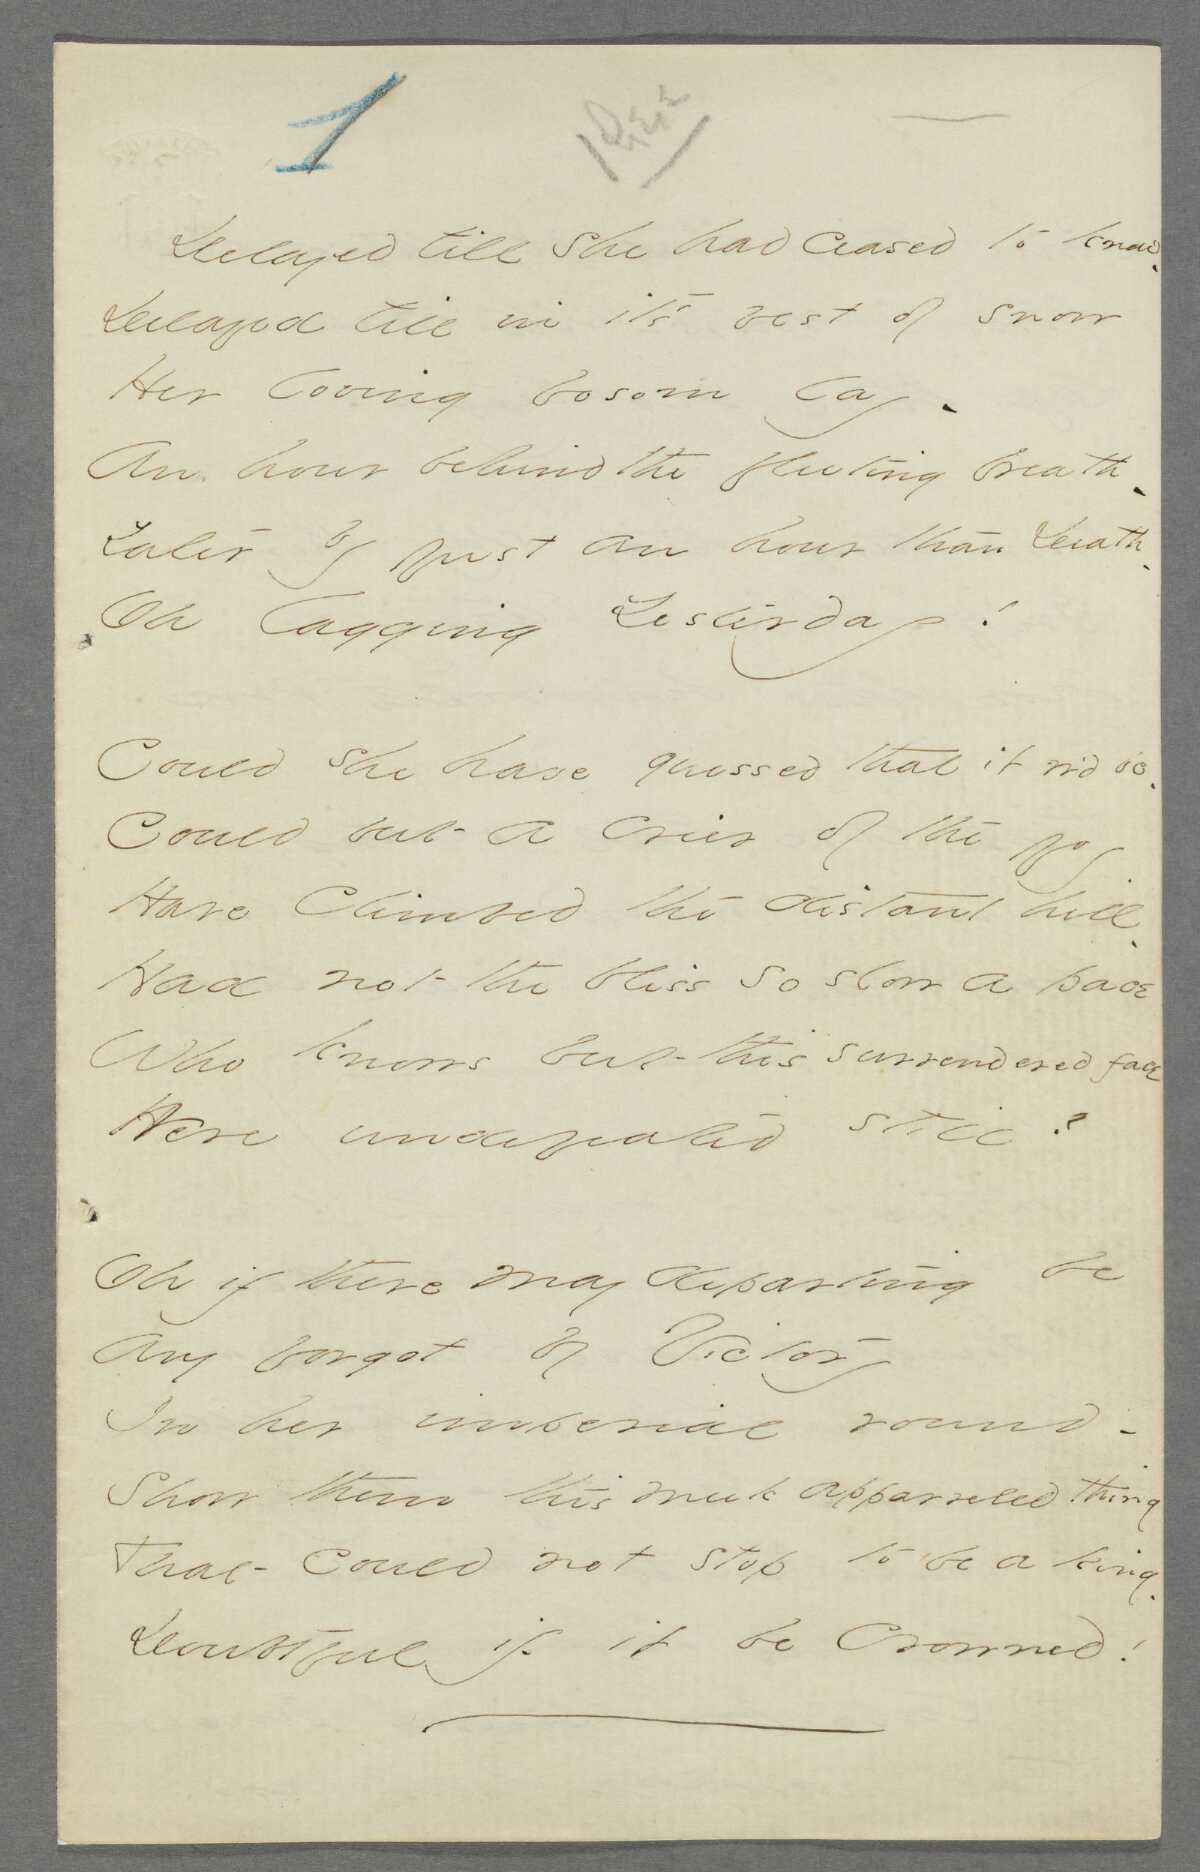 1
Delayed till she had ceased to know.
Delayed till in it's vest of snow
Her loving bosom lay.
An hour behind the fleeting breath.
Later by just an hour than Death.
Oh lagging Yesterday!
Could she have guessed that it w'd be.
Could but a crier of the joy
Have climbed the distant hill.
Had not the bliss so slow a pace
Who knows but this surrendered face
Were undefeated still?
Oh if there may departing be
Any forgot by Victory
In her imperial round -
Show them this meek apparreled thing
That could not stop to be a king.
Doubtful if it be crowned!